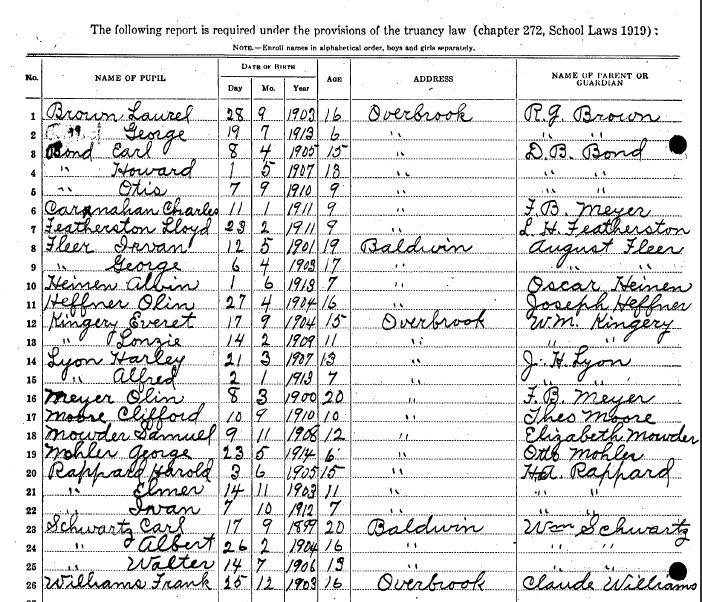 The following report is required under the provisions of the truancy law (chapter 272, School Laws 1919):
NOTE.—Enroll names in alphabetical order, boys and girls separately.
No. NAME OF PUPIL DATE OF BIRTH Day Mo. Year AGE ADDRESS NAME OF PARENT OR GUARDIAN
1 Brown Laurel 28 9 1903 16 Overbrook R.G. Brown
2 George 19 7 1913 6 " " "
3 Bond Earl 8 4 1905 15 " D.B. Bond
4 " Howard 1 5 1907 13 " " "
5 " Otis 7 9 1910 9 " " "
6 Carnahan Charles 11 1 1911 9 " F.B. Meyer
7 Featherston Lloyd 23 2 1911 9 " L.H. Featherston
8 Fleer Irvan 12 5 1901 19 Baldwin August Fleer
9 " George 6 4 1903 17 " " "
10 Heinen Albin 1 6 1913 7 " Oscar Heinen
11 Heffner Olin 27 4 1904 16 " Joseph Heffner
12 Kingery Everet 17 9 1904 15 Overbrook Wm. Kingery
13 " Lonzie 14 2 1909 11 " " "
14 Lyon Harley 21 3 1907 13 " J.H. Lyon
15 " Alfred 2 1 1913 7 " " "
16 Meyer Olin 8 3 1900 20 " F.B. Meyer
17 Moore Clifford 10 9 1910 10 " Theo Moore
18 Mowder Samuel 9 11 1908 12 " Elizabeth Mowder
19 Mohler George 23 5 1914 6 " Otto Mohler
20 Rappard Harold 3 6 1905 15 " H.A. Rappard
21 " Elmer 14 11 1903 11 " " "
22 " Ivan 7 10 1912 7 " " "
23 Schwartz Carl 17 9 1899 20 Baldwin Wm Schwartz
24 " Albert 26 2 1904 16 " " "
25 " Walter 14 7 1906 13 " " "
26 Williams Frank 25 12 1903 16 Overbrook Claude Williams